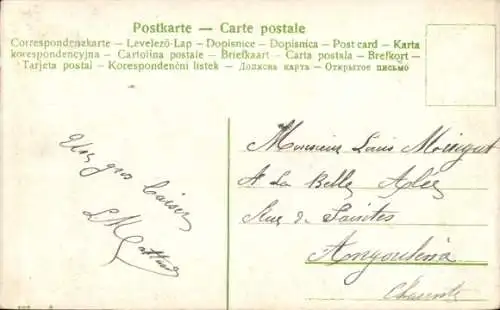 Postkarte — Carte postale
Correspondenzkarte – Levelező-Lap – Dopisnice – Dopisnica – Post card – Karta
korespondencyjna – Cartolina postale – Briefkaart – Carta postala – Brefkort –
Tarjeta postal – Korespondenční lístek – Дописна карта – Открытое письмо
Un gros baiser
Monsieur Louis
A La Belle
Rue de Saintes
Angoulême
Charente